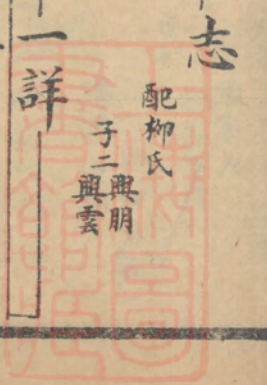 志
配柳氏
子二興朋
興雲
一詳